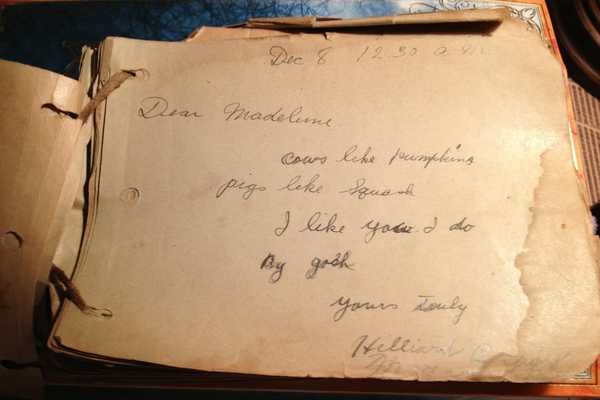 Dec 8 12.30 a.m.
Dear Madeline
cows like pumpkins
pigs like squash
I like you I do
By gosh
yours truly
Hilliard